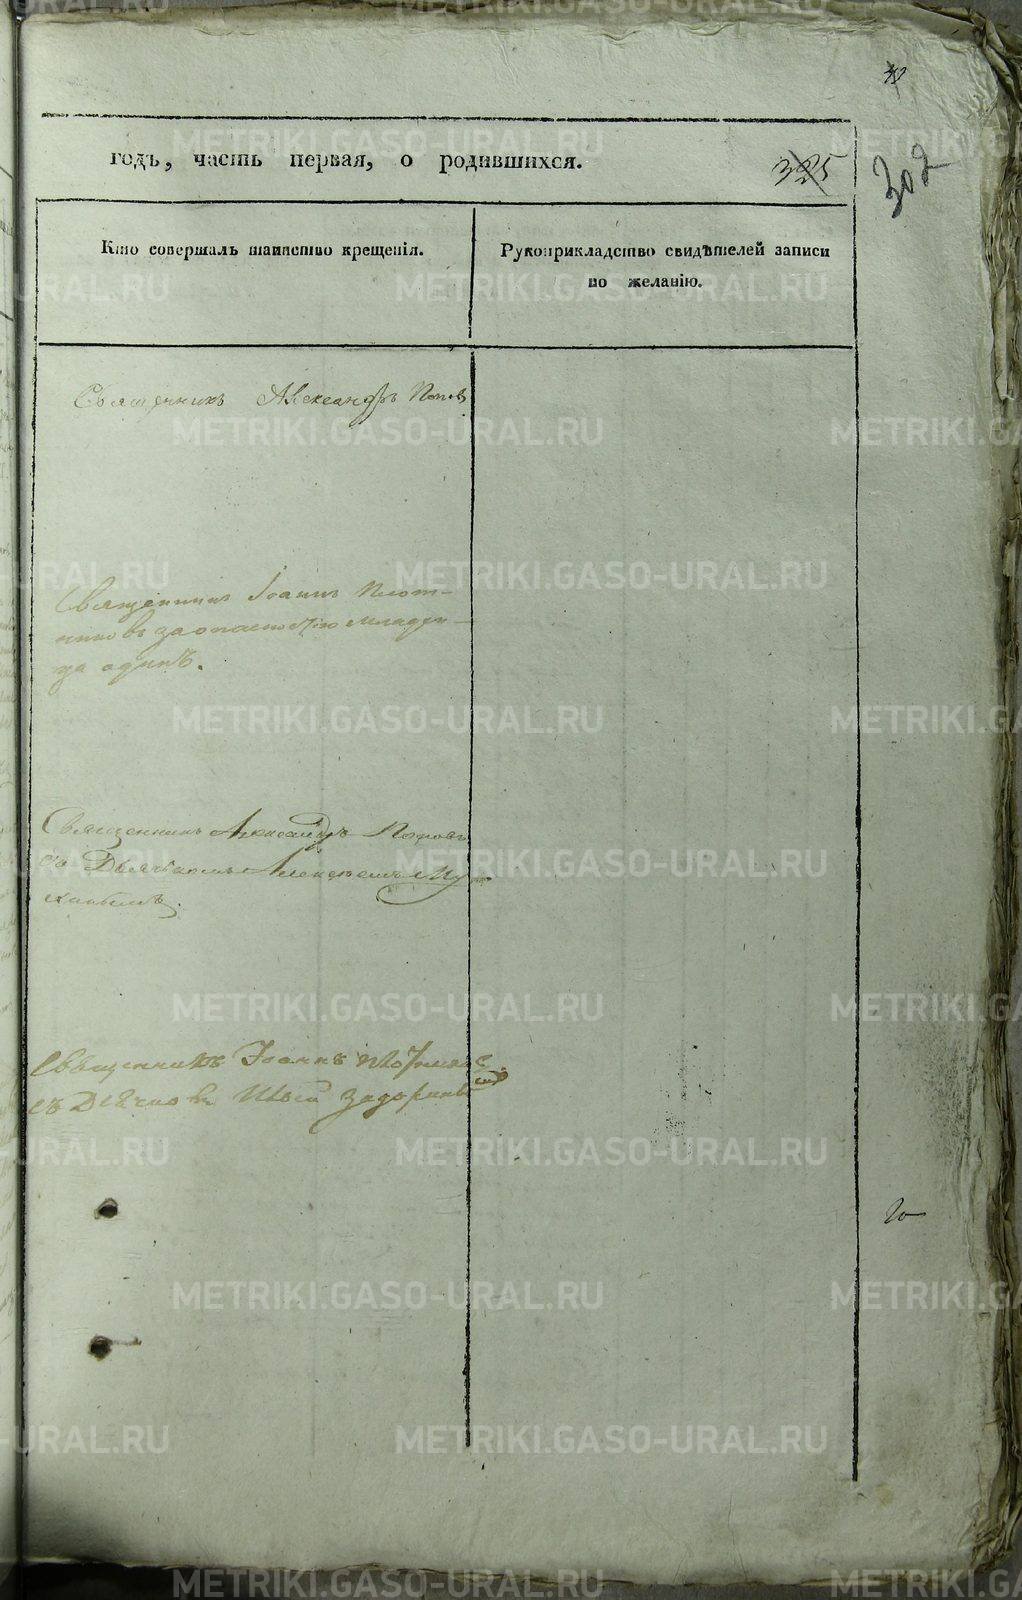 годъ, часть первая, о родившихся.
325
302
Кто совершалъ таинство крещенія.
Рукоприкладство свидѣтелей записи
по желанію.
Священникъ Александръ Поповъ
Священникъ Іоаннъ Плот-
никовъ за опасностію младен-
ца одинъ.
Священникъ Александръ Поповъ
съ Дьячкомъ Алексѣемъ
Священникъ Іоаннъ Плотниковъ
съ
METRIKI.GASO-URAL.RU